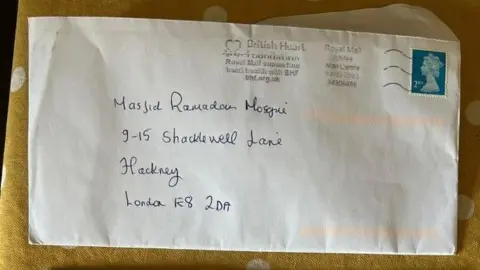 British Heart
Foundation
Royal Mail supporting
heart health with BHF
bhf.org.uk
Royal Mail
2ND
Masjid Ramadan Mosque
9-15 Shacklewell Lane
Hackney
London E8 2DA